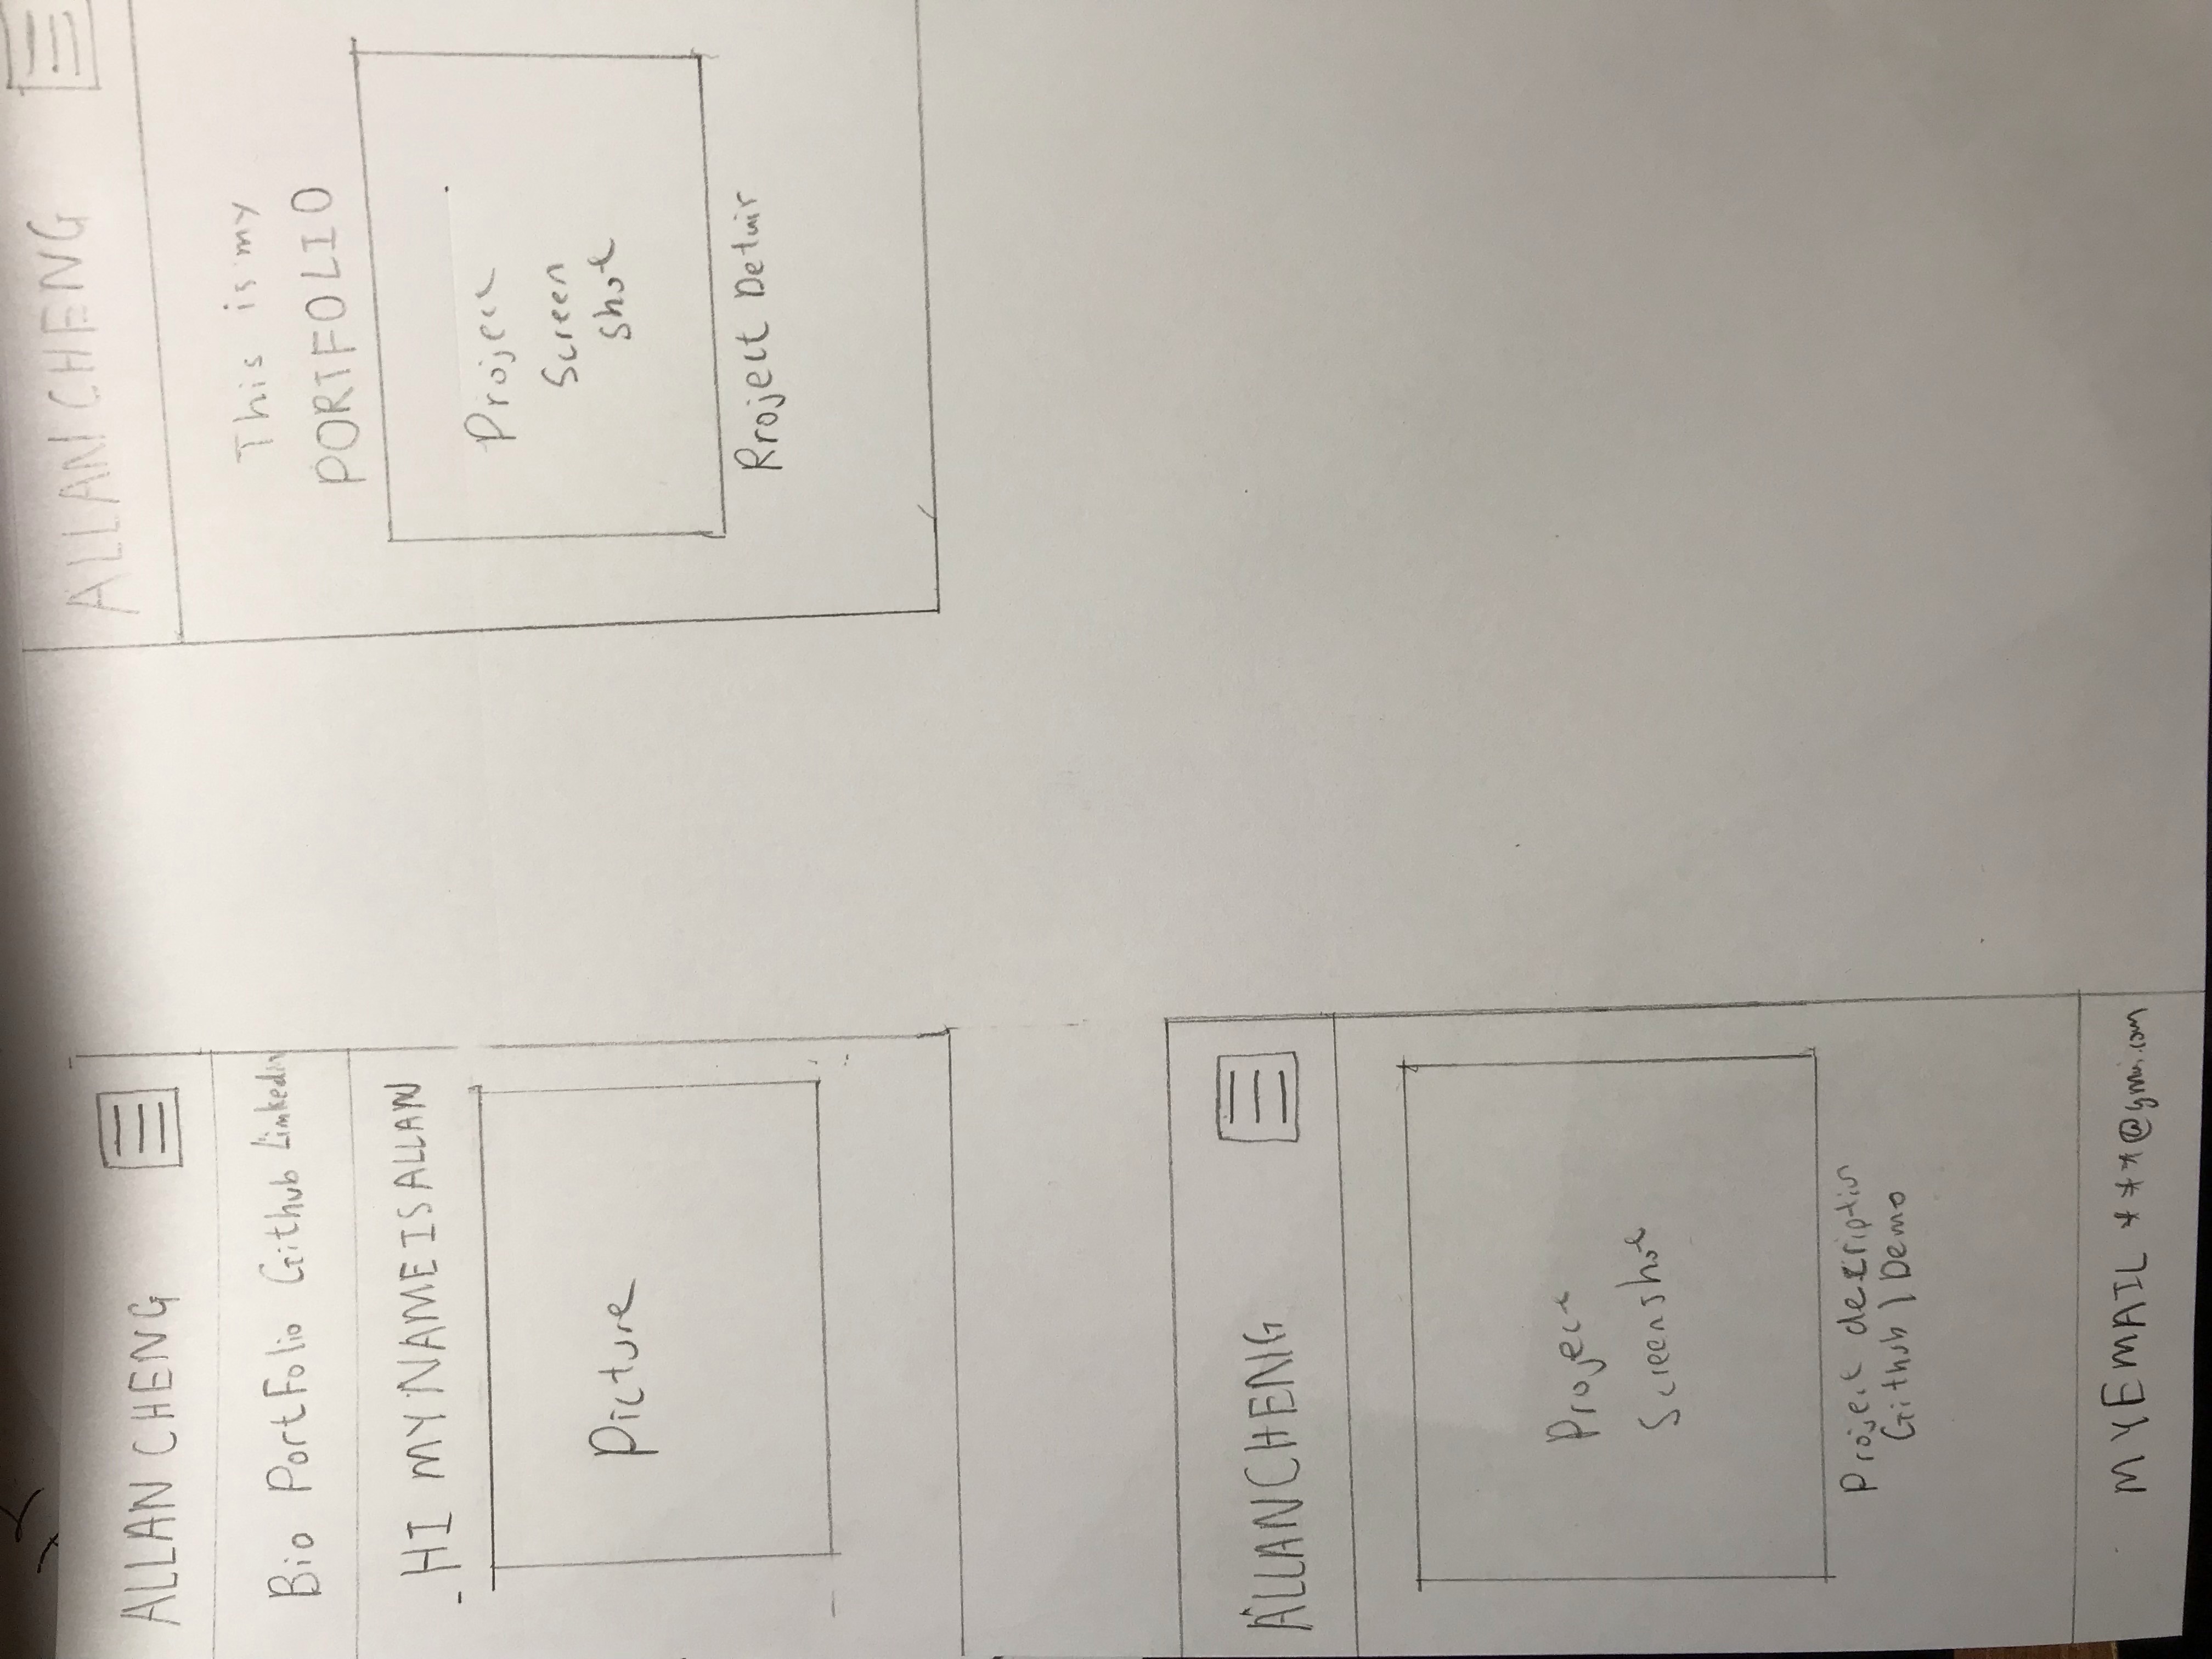 ALLAN CHENG
Bio PortFolio Github Linkedin
HI MY NAME IS ALLAN
Picture
ALLAN CHENG
This is my
PORTFOLIO
Project
Screen
shot
Project
ALLAN CHENG
Project
Screenshot
Project
Github | Demo
MY EMAIL ***